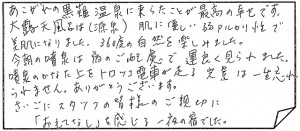 あこがれの黒薙温泉に来られたことが最高の幸せです。
大露天風呂は(源泉) 肌に優しい弱アルカリ性で
美肌になりました。360度の自然を楽しみました。
今朝の晴景は宿のご配慮で運良く見られました。
晴景のかなた上をトロッコ電車が走る光景は一生忘れ
られません。ありがとうございます。
さいごにスタッフの皆様のご親切に
「おもてなし」を感じる一夜の宿でした。